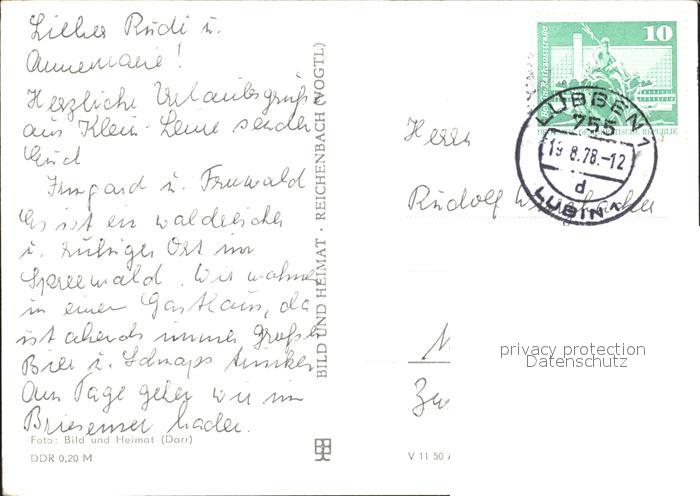 Lieber Rudi u.
Annemarie!
Herzliche Urlaubsgrüße
aus Klein-Leine senden
Euch
Irmgard u. Fruwald
Es ist ein waldreicher
u. ruhiger Ort im
Spreewald. Wir wohnen
in einem Gasthaus, da
ist abends immer großes
Bier u. Schnaps trinken
Am Tage gehen wir im
Briesensee baden.
Foto: Bild und Heimat (Darr)
DDR 0,20 M
BILD UND HEIMAT · REICHENBACH (VOGTL)
V 11 50
10
Rathausstraße
DEUTSCHE DEMOKRATISCHE REPUBLIK
LÜBBEN 1
755
19.8.78.-12
d
LUBIN 1
Herrn
Rudolf
privacy protection
Datenschutz